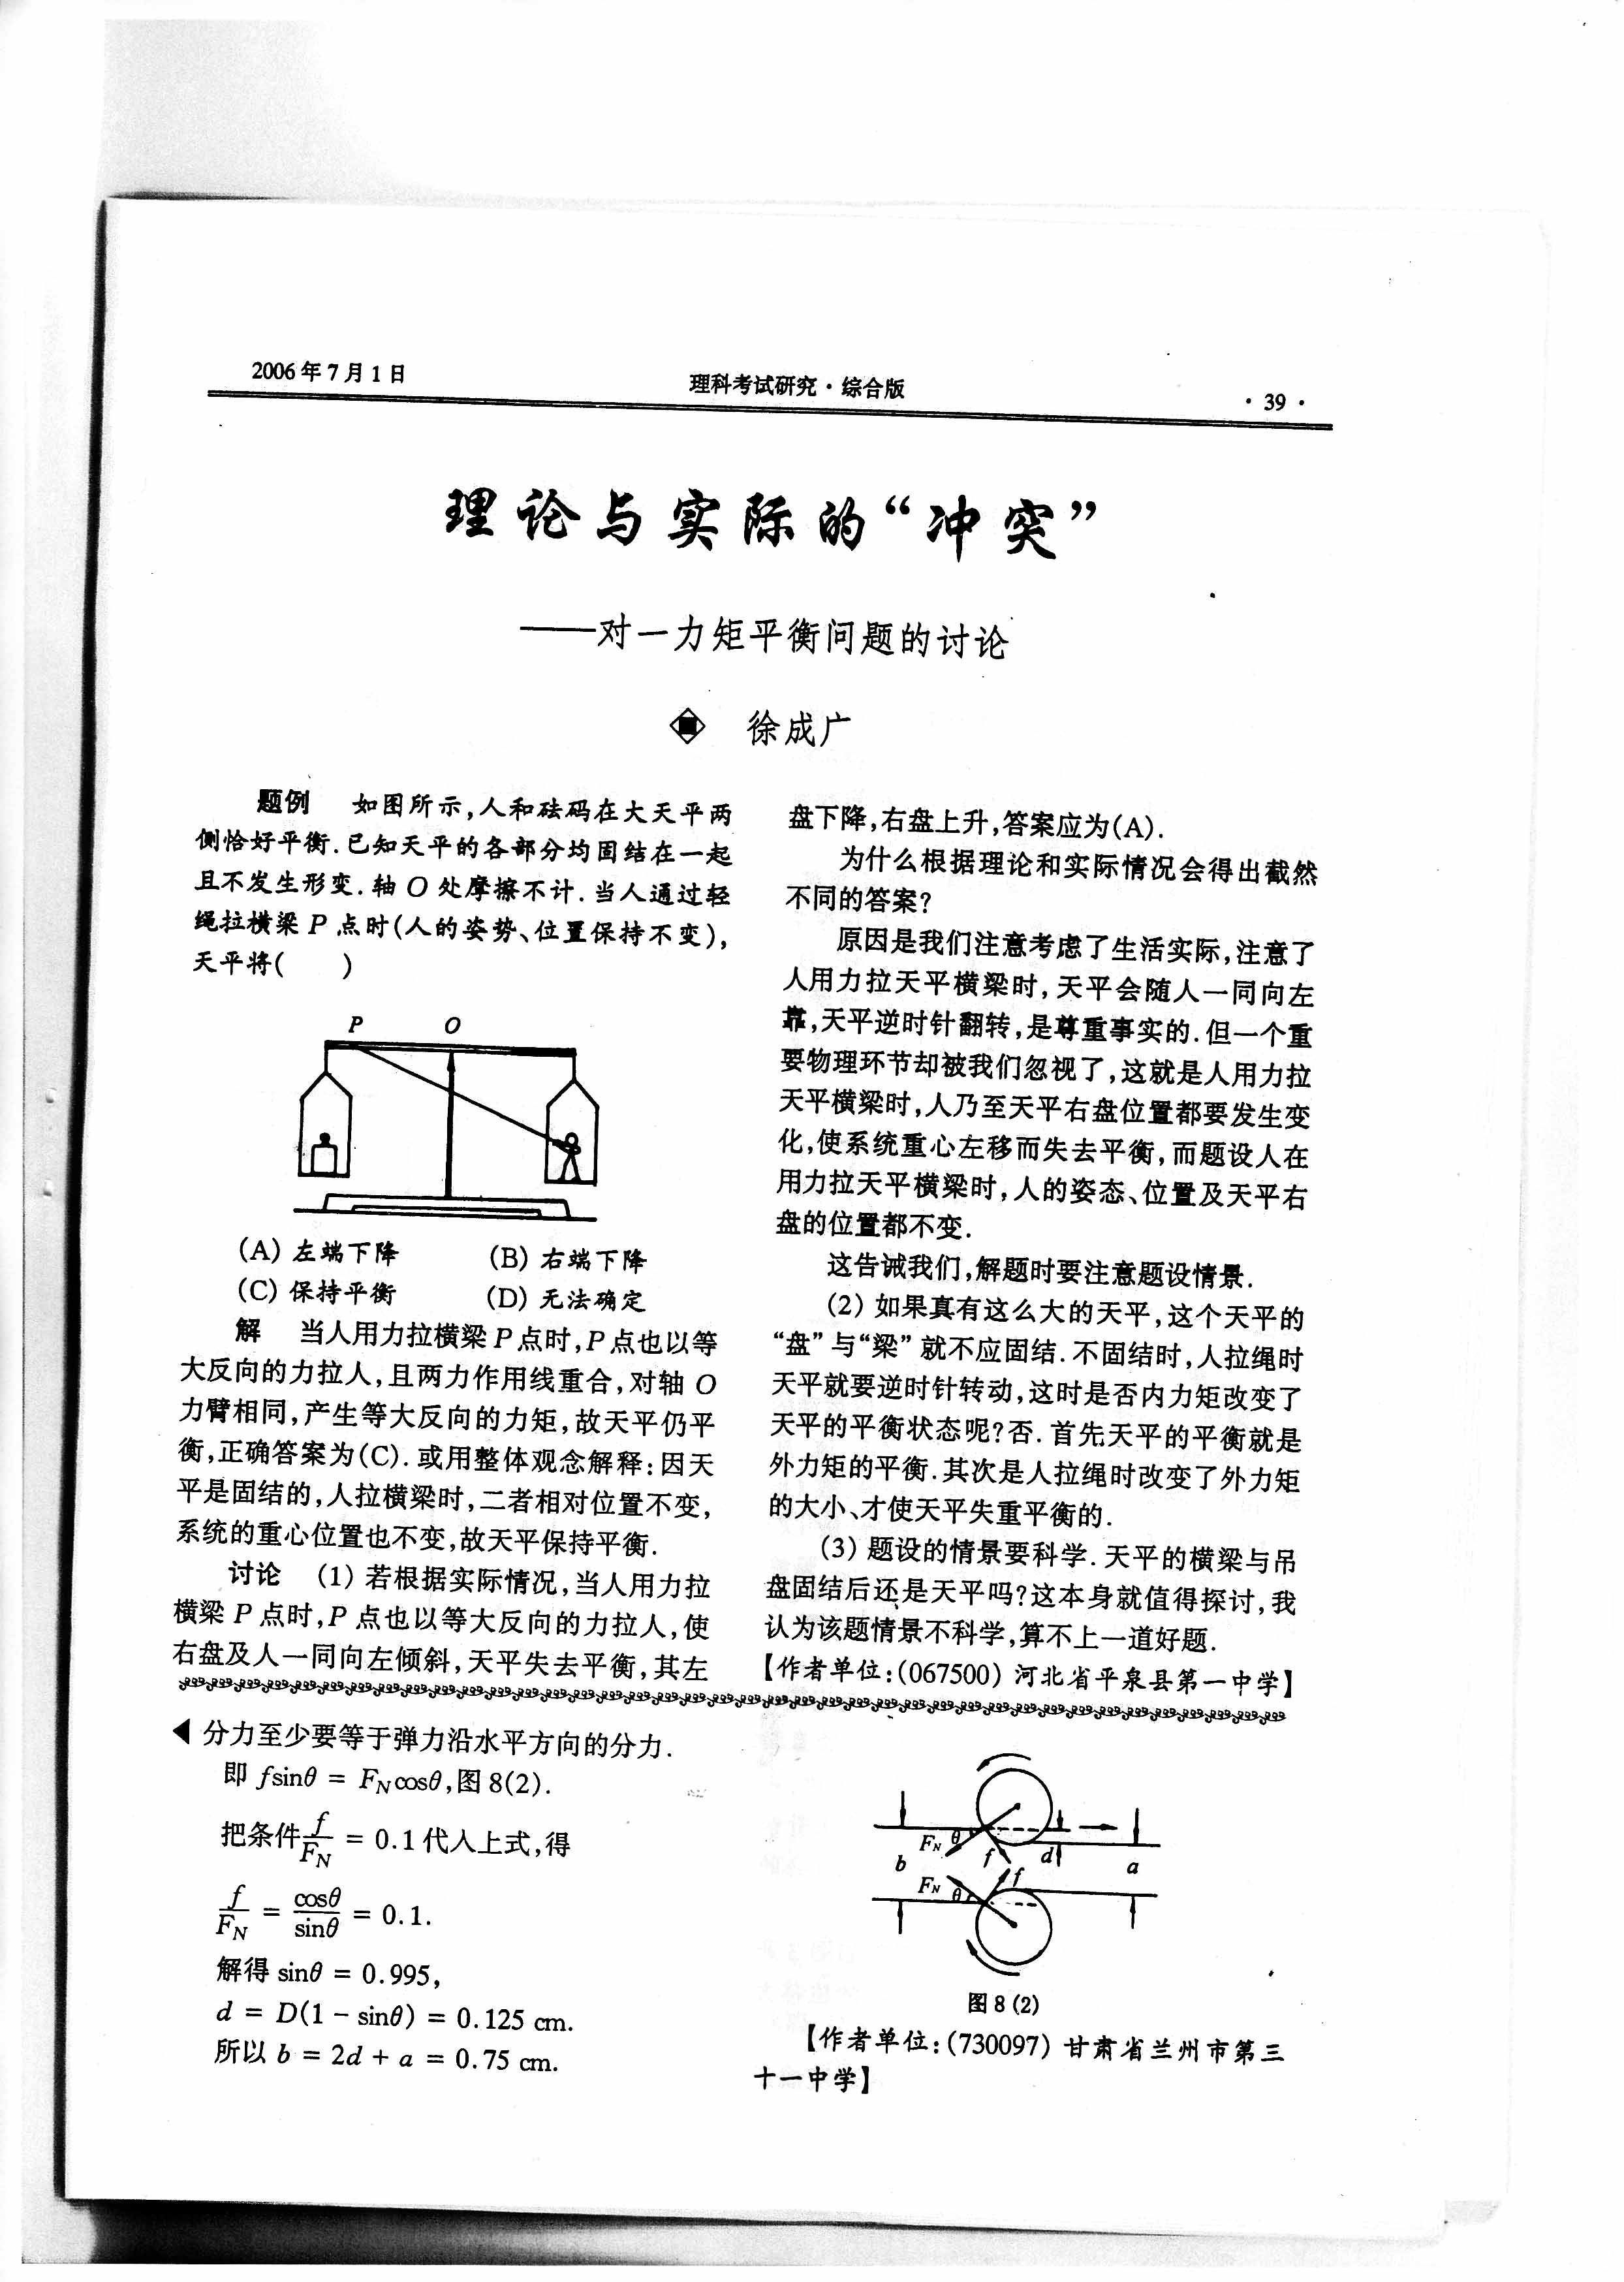 2006年7月1日
理科考试研究·综合版
·39·
理论与实际的“冲突”
——对一力矩平衡问题的讨论
徐成广
题例 如图所示,人和砝码在大天平两
侧恰好平衡.已知天平的各部分均固结在一起
且不发生形变.轴O处摩擦不计.当人通过轻
绳拉横梁P点时(人的姿势、位置保持不变),
天平将( )
P O
(A) 左端下降 (B) 右端下降
(C) 保持平衡 (D) 无法确定
解 当人用力拉横梁P点时,P点也以等
大反向的力拉人,且两力作用线重合,对轴O
力臂相同,产生等大反向的力矩,故天平仍平
衡,正确答案为(C).或用整体观念解释:因天
平是固结的,人拉横梁时,二者相对位置不变,
系统的重心位置也不变,故天平保持平衡.
讨论 (1) 若根据实际情况,当人用力拉
横梁P点时,P点也以等大反向的力拉人,使
右盘及人一同向左倾斜,天平失去平衡,其左
盘下降,右盘上升,答案应为(A).
为什么根据理论和实际情况会得出截然
不同的答案?
原因是我们注意考虑了生活实际,注意了
人用力拉天平横梁时,天平会随人一同向左
靠,天平逆时针翻转,是尊重事实的.但一个重
要物理环节却被我们忽视了,这就是人用力拉
天平横梁时,人乃至天平右盘位置都要发生变
化,使系统重心左移而失去平衡,而题设人在
用力拉天平横梁时,人的姿态、位置及天平右
盘的位置都不变.
这告诫我们,解题时要注意题设情景.
(2) 如果真有这么大的天平,这个天平的
“盘”与“梁”就不应固结.不固结时,人拉绳时
天平就要逆时针转动,这时是否内力矩改变了
天平的平衡状态呢?否.首先天平的平衡就是
外力矩的平衡.其次是人拉绳时改变了外力矩
的大小、才使天平失重平衡的.
(3) 题设的情景要科学.天平的横梁与吊
盘固结后还是天平吗?这本身就值得探讨,我
认为该题情景不科学,算不上一道好题.
【作者单位:(067500) 河北省平泉县第一中学】
◀分力至少要等于弹力沿水平方向的分力.
即 fsinθ = F_N cosθ,图8(2).
把条件 f/F_N = 0.1代入上式,得
f/F_N = cosθ/sinθ = 0.1.
解得 sinθ = 0.995,
d = D(1 - sinθ) = 0.125 cm.
所以 b = 2d + a = 0.75 cm.
F_N θ f d
b a
F_N θ f
图8(2)
【作者单位:(730097) 甘肃省兰州市第三
十一中学】